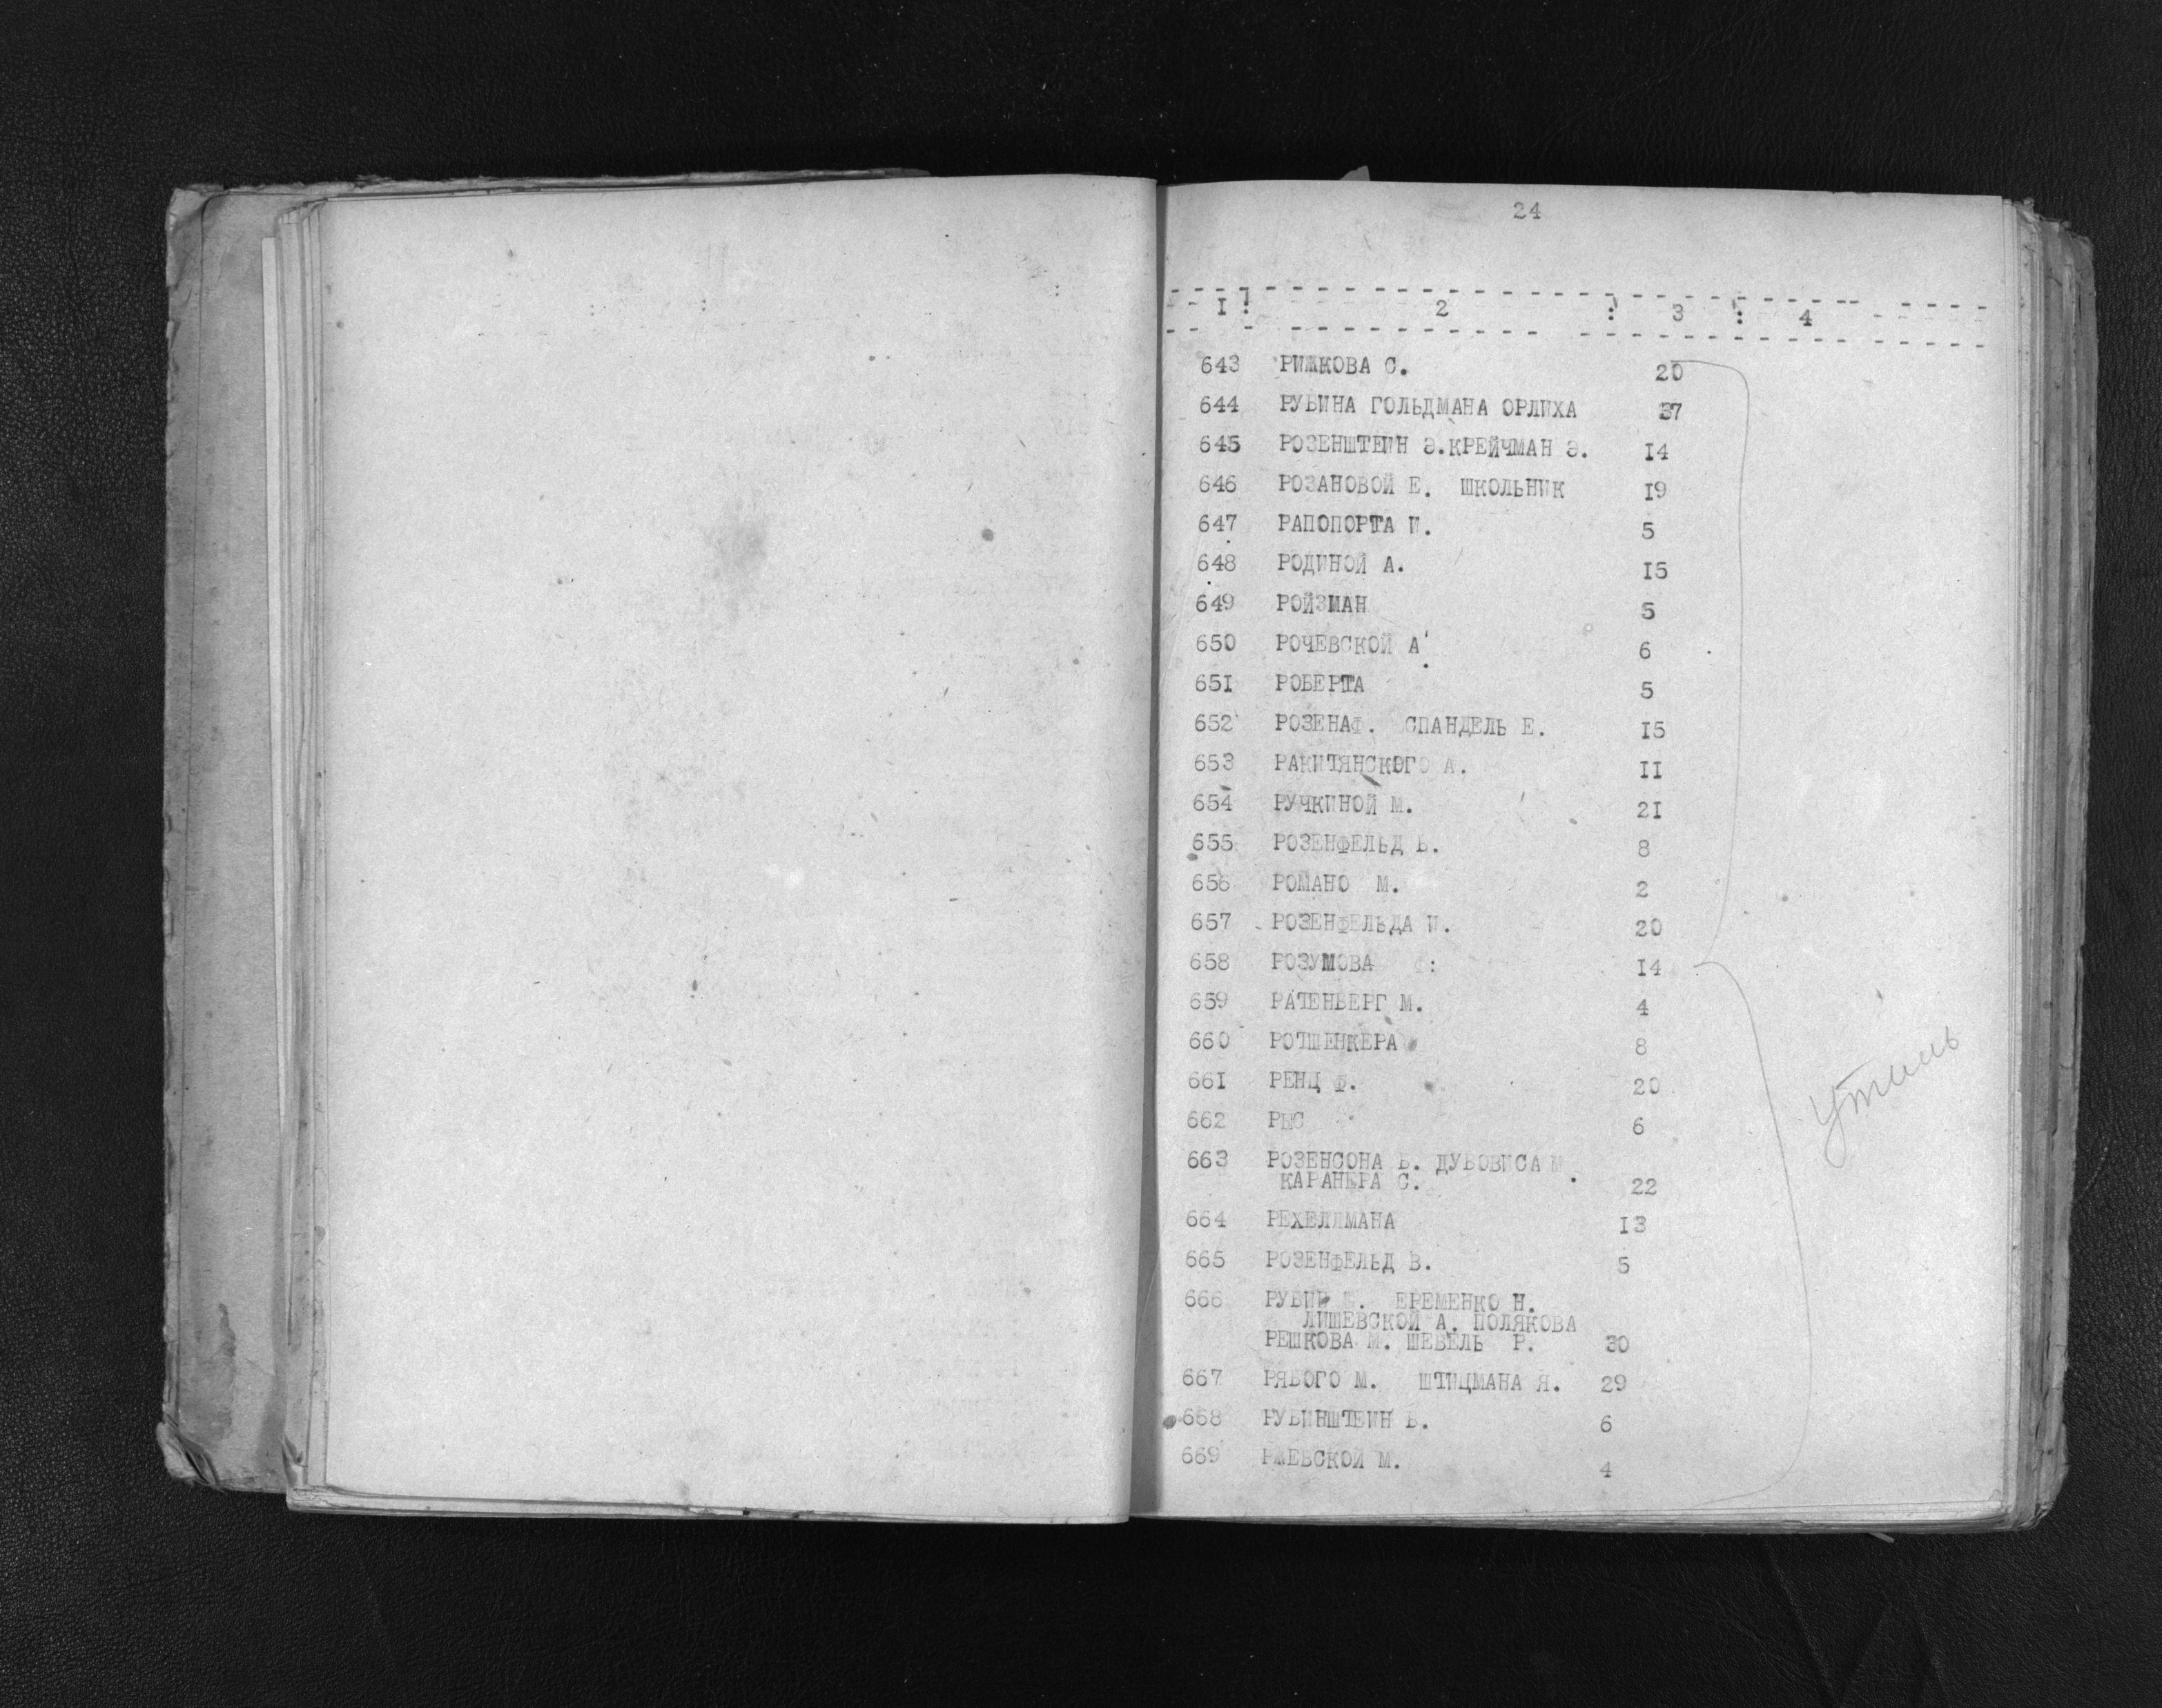 24
I : 2 : 3 : 4
643 РИЖКОВА С. 20
644 РУБИНА ГОЛЬДМАНА ОРЛИХА 37
645 РОЗЕНШТЕЙН Э.КРЕЙЧМАН Э. I4
646 РОЗАНОВОЙ Е. ШКОЛЬНИК I9
647 РАПОПОРТА И. 5
648 РОДИНОЙ А. I5
649 РОЙЗМАН 5
650 РОЧЕВСКОЙ А. 6
65I РОБЕРТА 5
652 РОЗЕНАФ. СПАНДЕЛЬ Е. I5
653 РАКИТЯНСКОГО А. II
654 РУЧКИНОЙ М. 2I
655 РОЗЕНФЕЛЬД Б. 8
656 РОМАНО М. 2
657 РОЗЕНФЕЛЬДА И. 20
658 РОЗУМОВА : I4
659 РАТЕНБЕРГ М. 4
660 РОТШЕНКЕРА 8
66I РЕНЦ Ф. 20
662 РЫС 6
663 РОЗЕНСОНА Б. ДУБОВИСА
КАРАНЕРА С. 22
664 РЕХЕЛЛМАНА I3
665 РОЗЕНФЕЛЬД В. 5
666 РУБИН ЕРЕМЕНКО Н.
ЛИШЕВСКОЙ А. ПОЛЯКОВА
РЕШКОВА М. ШЕВЕЛЬ Р. 30
667 РЯБОГО М. ШТИЦМАНА Я. 29
668 РУБИНШТЕЙН Б. 6
669 РЖЕВСКОЙ М. 4
утиль